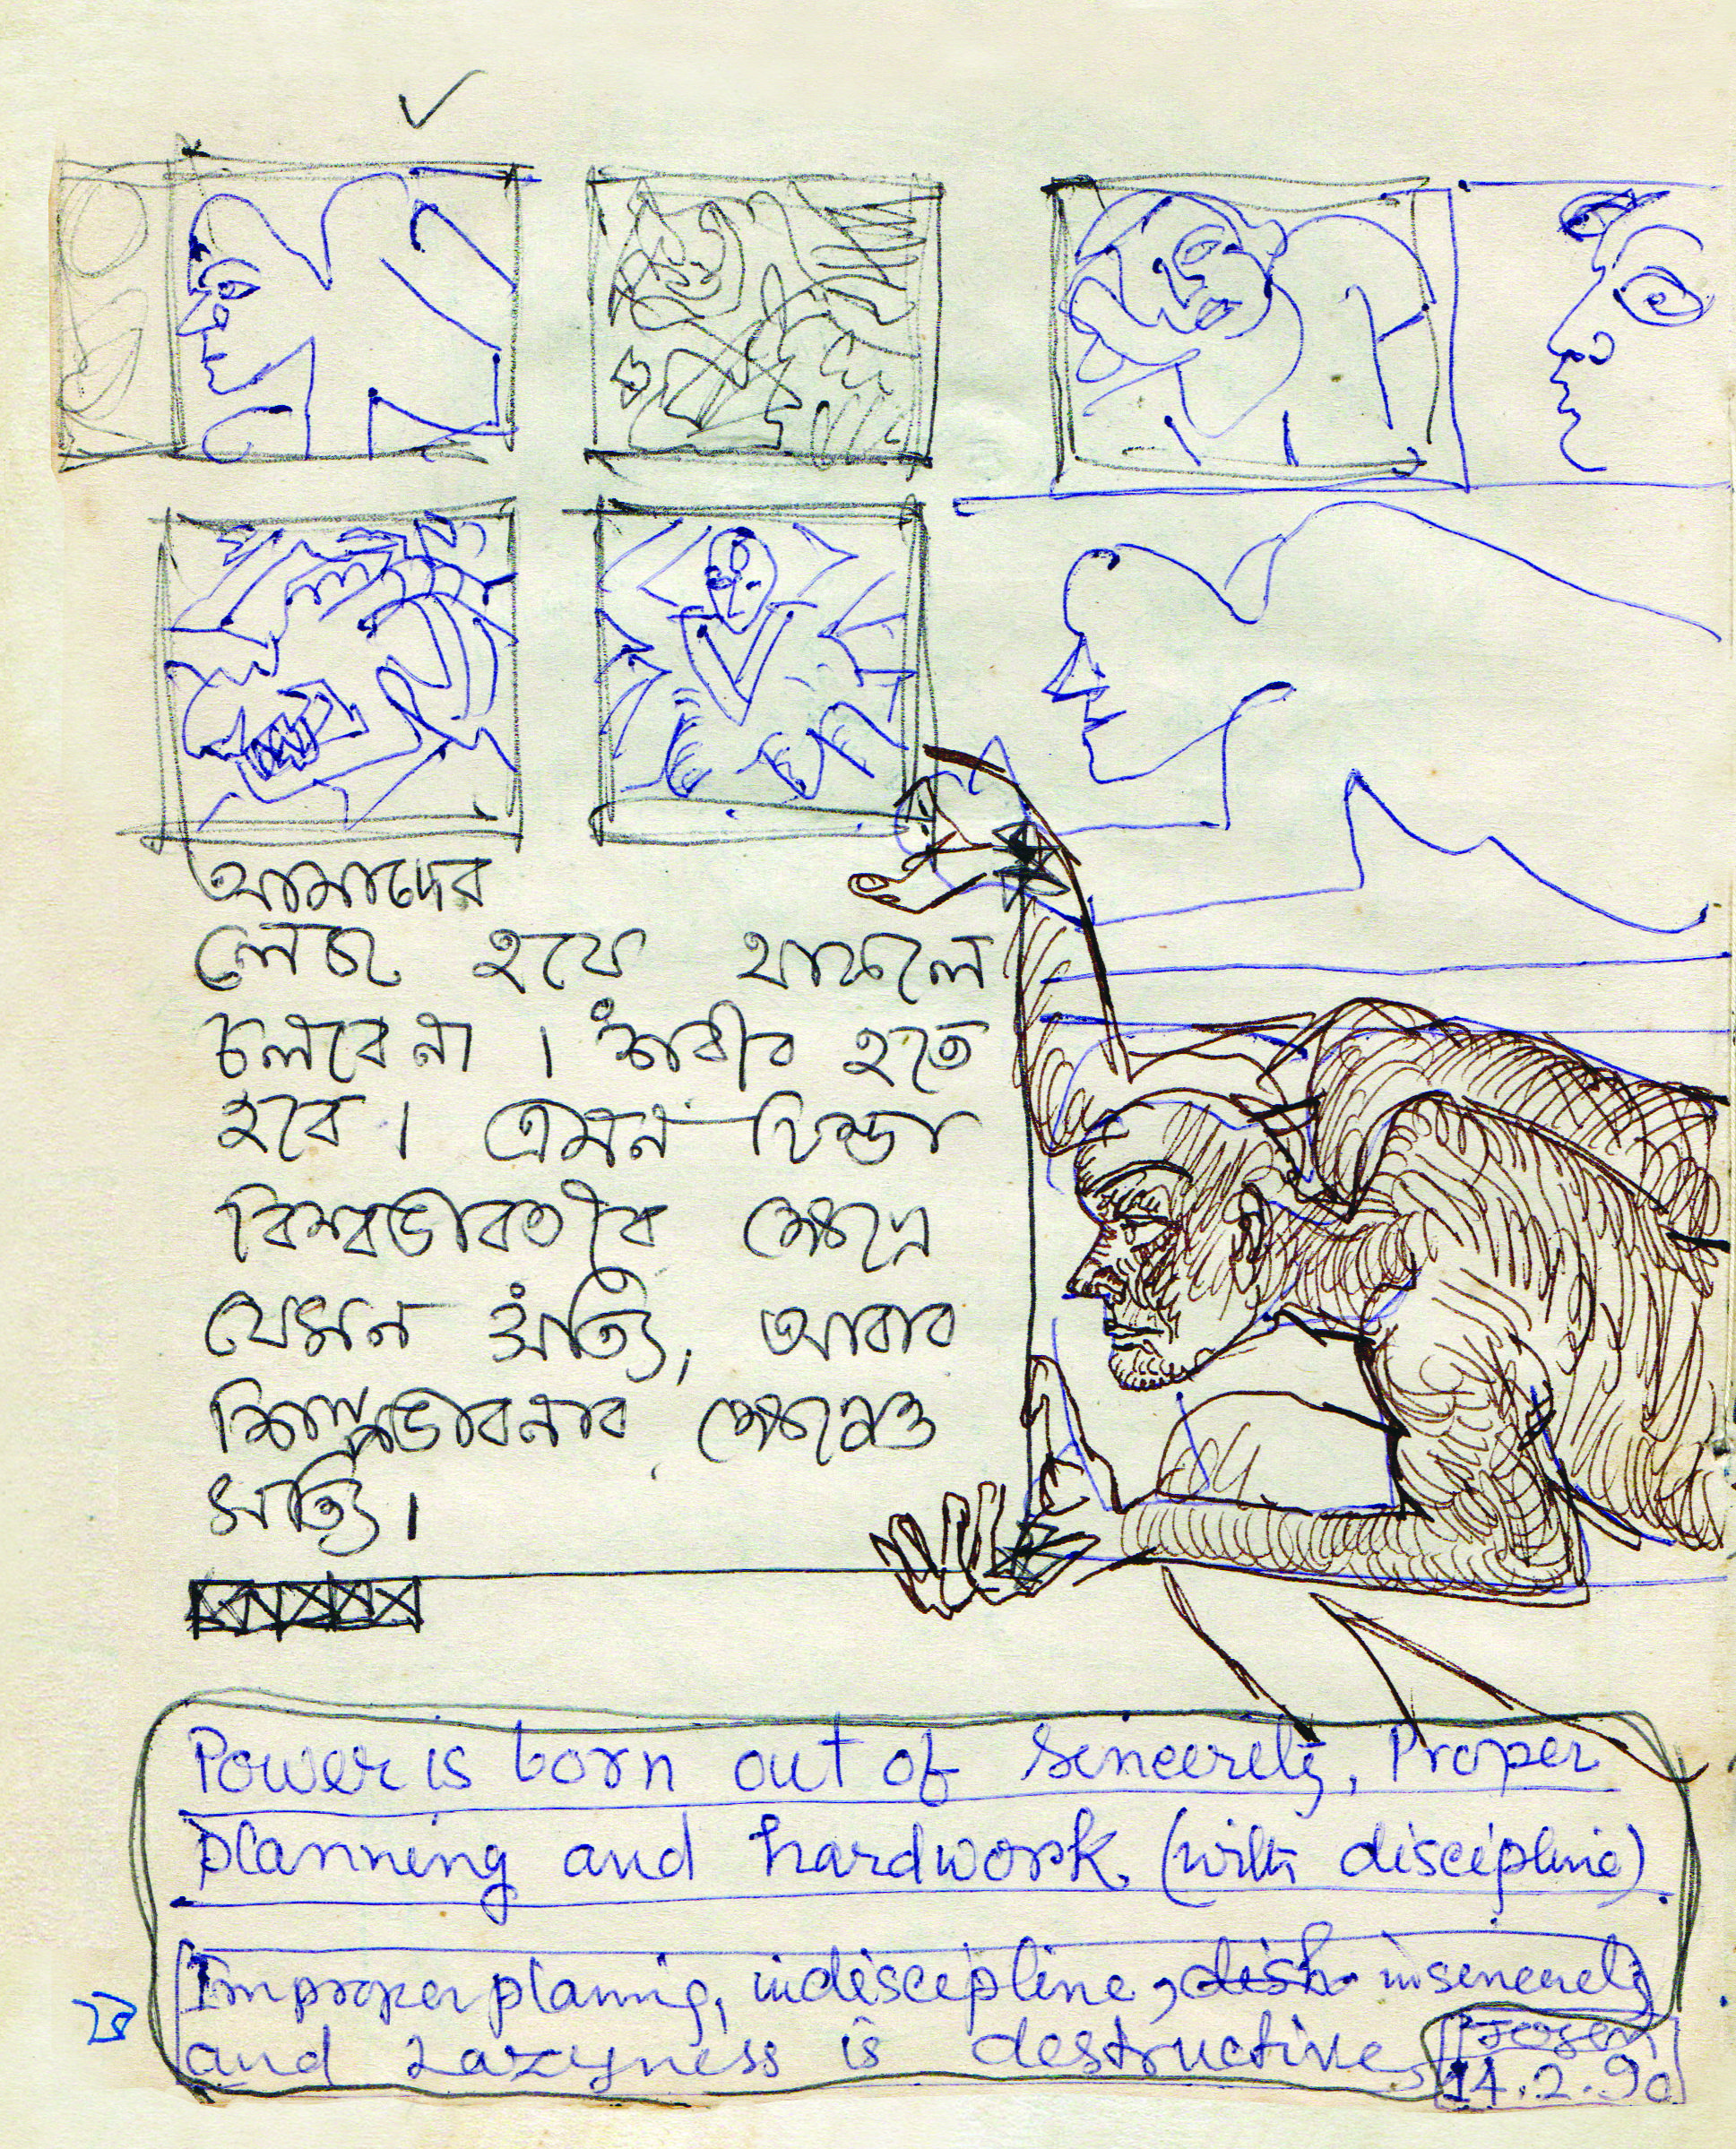 আমাদের
লেচং হয়ে থাকলে
চলবে না । শরীর হতে
হবে । এমন চিন্তা
বিশ্বভারতীর ক্ষেত্রে
যেমন সত্যি, আবার
শিল্পভাবনার ক্ষেত্রেও
সত্যি ।
Power is born out of Sincerely, Proper
planning and hardwork. (with disciepline)
Improper plannig, indisciepline, insencerely
and Lazyness is destructive
14.2.90